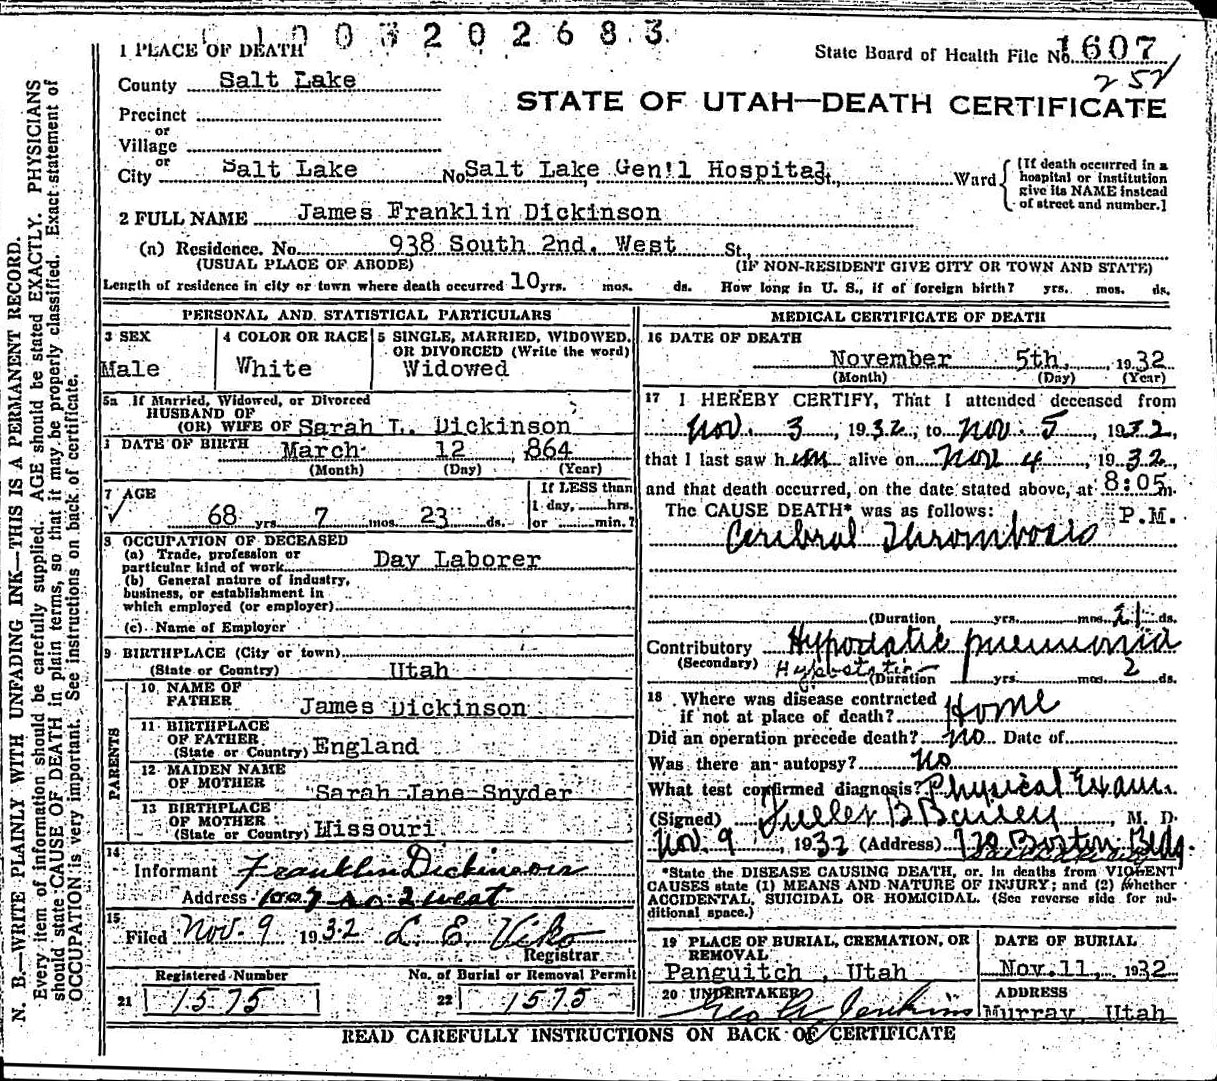 1003202683
1 PLACE OF DEATH
State Board of Health File No. 1607
252
County Salt Lake
STATE OF UTAH—DEATH CERTIFICATE
Precinct
or
Village
or
City Salt Lake No. Salt Lake Gen'l Hospital St., Ward
[If death occurred in a hospital or institution give its NAME instead of street and number.]
2 FULL NAME James Franklin Dickinson
(a) Residence. No. 938 South 2nd. West St.,
(USUAL PLACE OF ABODE) (IF NON-RESIDENT GIVE CITY OR TOWN AND STATE)
Length of residence in city or town where death occurred 10 yrs. mos. ds. How long in U. S., if of foreign birth? yrs. mos. ds.
PERSONAL AND STATISTICAL PARTICULARS
3 SEX
Male
4 COLOR OR RACE
White
5 SINGLE, MARRIED, WIDOWED,
OR DIVORCED (Write the word)
Widowed
5a If Married, Widowed, or Divorced
HUSBAND OF
(OR) WIFE OF Sarah L. Dickinson
DATE OF BIRTH March 12, 1864
(Month) (Day) (Year)
7 AGE
68 yrs 7 mos. 23 ds.
If LESS than
1 day, hrs.
or min.?
8 OCCUPATION OF DECEASED
(a) Trade, profession or
particular kind of work Day Laborer
(b) General nature of industry,
business, or establishment in
which employed (or employer)
(c) Name of Employer
9 BIRTHPLACE (City or town)
(State or Country) Utah
PARENTS
10. NAME OF
FATHER James Dickinson
11 BIRTHPLACE
OF FATHER
(State or Country) England
12 MAIDEN NAME
OF MOTHER Sarah Jane Snyder
13 BIRTHPLACE
OF MOTHER
(State or Country) Missouri
14
Informant Franklin Dickinson
Address 1007 So 2 west
15
Filed Nov. 9 1932 L. E. Viko
Registrar
Registered Number No. of Burial or Removal Permit
21 1575 22 1575
MEDICAL CERTIFICATE OF DEATH
16 DATE OF DEATH
November 5th, 1932
(Month) (Day) (Year)
17 I HEREBY CERTIFY, That I attended deceased from
Nov. 3, 1932, to Nov. 5, 1932,
that I last saw him alive on Nov 4, 1932,
and that death occurred, on the date stated above, at 8:05 m.
The CAUSE DEATH* was as follows: P.M.
Cerebral Thrombosis
(Duration yrs. mos. 21 ds.
Contributory Hypostatic pneumonia
(Secondary) Hypostatic
(Duration yrs. mos. 2 ds.
18 Where was disease contracted
if not at place of death? Home
Did an operation precede death? no Date of
Was there an autopsy? No
What test confirmed diagnosis? Physical Exam.
(Signed) Fuller B Bailey, M. D.
Nov. 9, 1932 (Address) 720 Boston Bldg.
*State the DISEASE CAUSING DEATH, or in deaths from VIOLENT
CAUSES state (1) MEANS AND NATURE OF INJURY; and (2) whether
ACCIDENTAL, SUICIDAL OR HOMICIDAL. (See reverse side for ad-
ditional space.)
19 PLACE OF BURIAL, CREMATION, OR
REMOVAL
Panguitch, Utah
DATE OF BURIAL
Nov. 11, 1932
20 UNDERTAKER
Geo A Jenkins
ADDRESS
Murray, Utah
READ CAREFULLY INSTRUCTIONS ON BACK OF CERTIFICATE
N. B.—WRITE PLAINLY WITH UNFADING INK—THIS IS A PERMANENT RECORD.
Every item of information should be carefully supplied. AGE should be stated EXACTLY. PHYSICIANS
should state CAUSE OF DEATH in plain terms, so that it may be properly classified. Exact statement of
OCCUPATION is very important. See instructions on back of certificate.